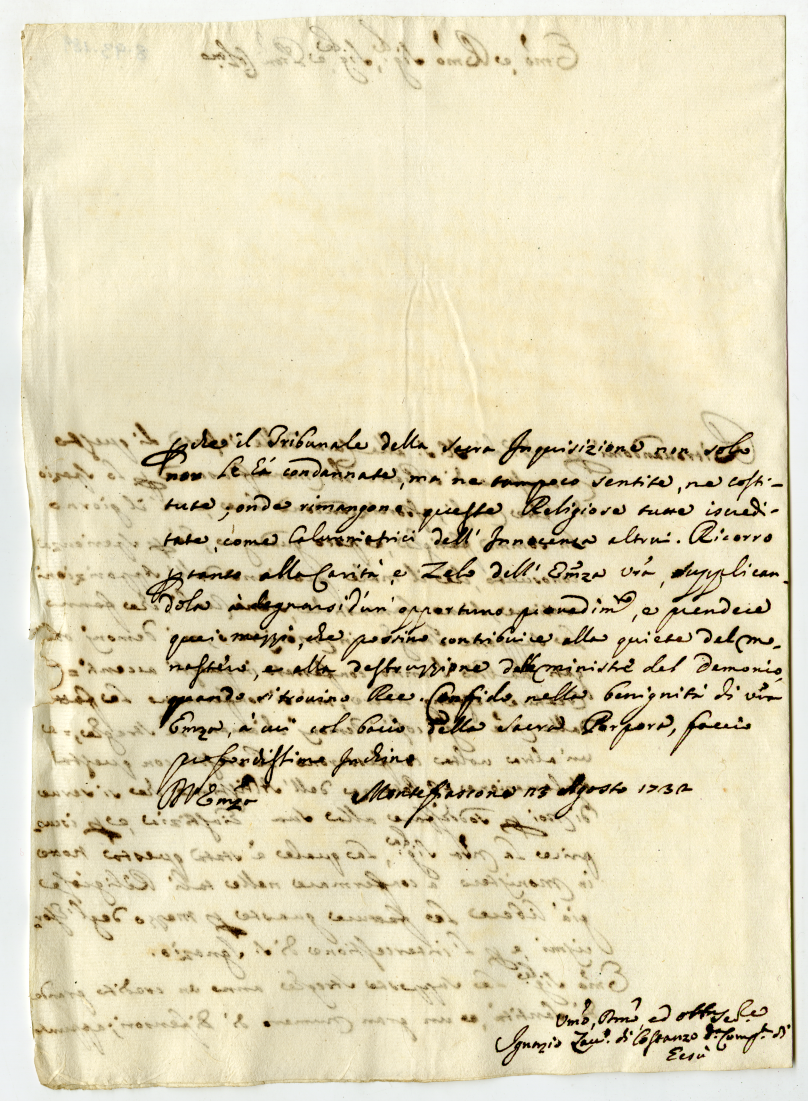 che il Tribunale della sacra Inquisizione non solo
non le hà condannate, ma ne tampoco sentite, ne costi-
tute, onde rimangono queste Religiose tutte iscredi-
tate, come Calunniatrici dell' Innocenza altrui. Ricorro
ptanto alla Carità, e Zelo dell' Emza vra, supplican-
dola à degnarsi d'un' opportuno provedimto, e prendere
quei mezzi, che possino contribuire alla quiete del mo-
nastero, e alla destruzzione delle ministre del Demonio,
quando si trovino Ree. Confido nella benignità di vra
Emza, à cui col bacio della Sacra Porpora, faccio
profondissimo Inchino
Di V. Emza Montefiascone 13 Agosto 1732
Umo, Dmo ed obbmo Sere
Ignazio di Costanzo Compa di
Gesù